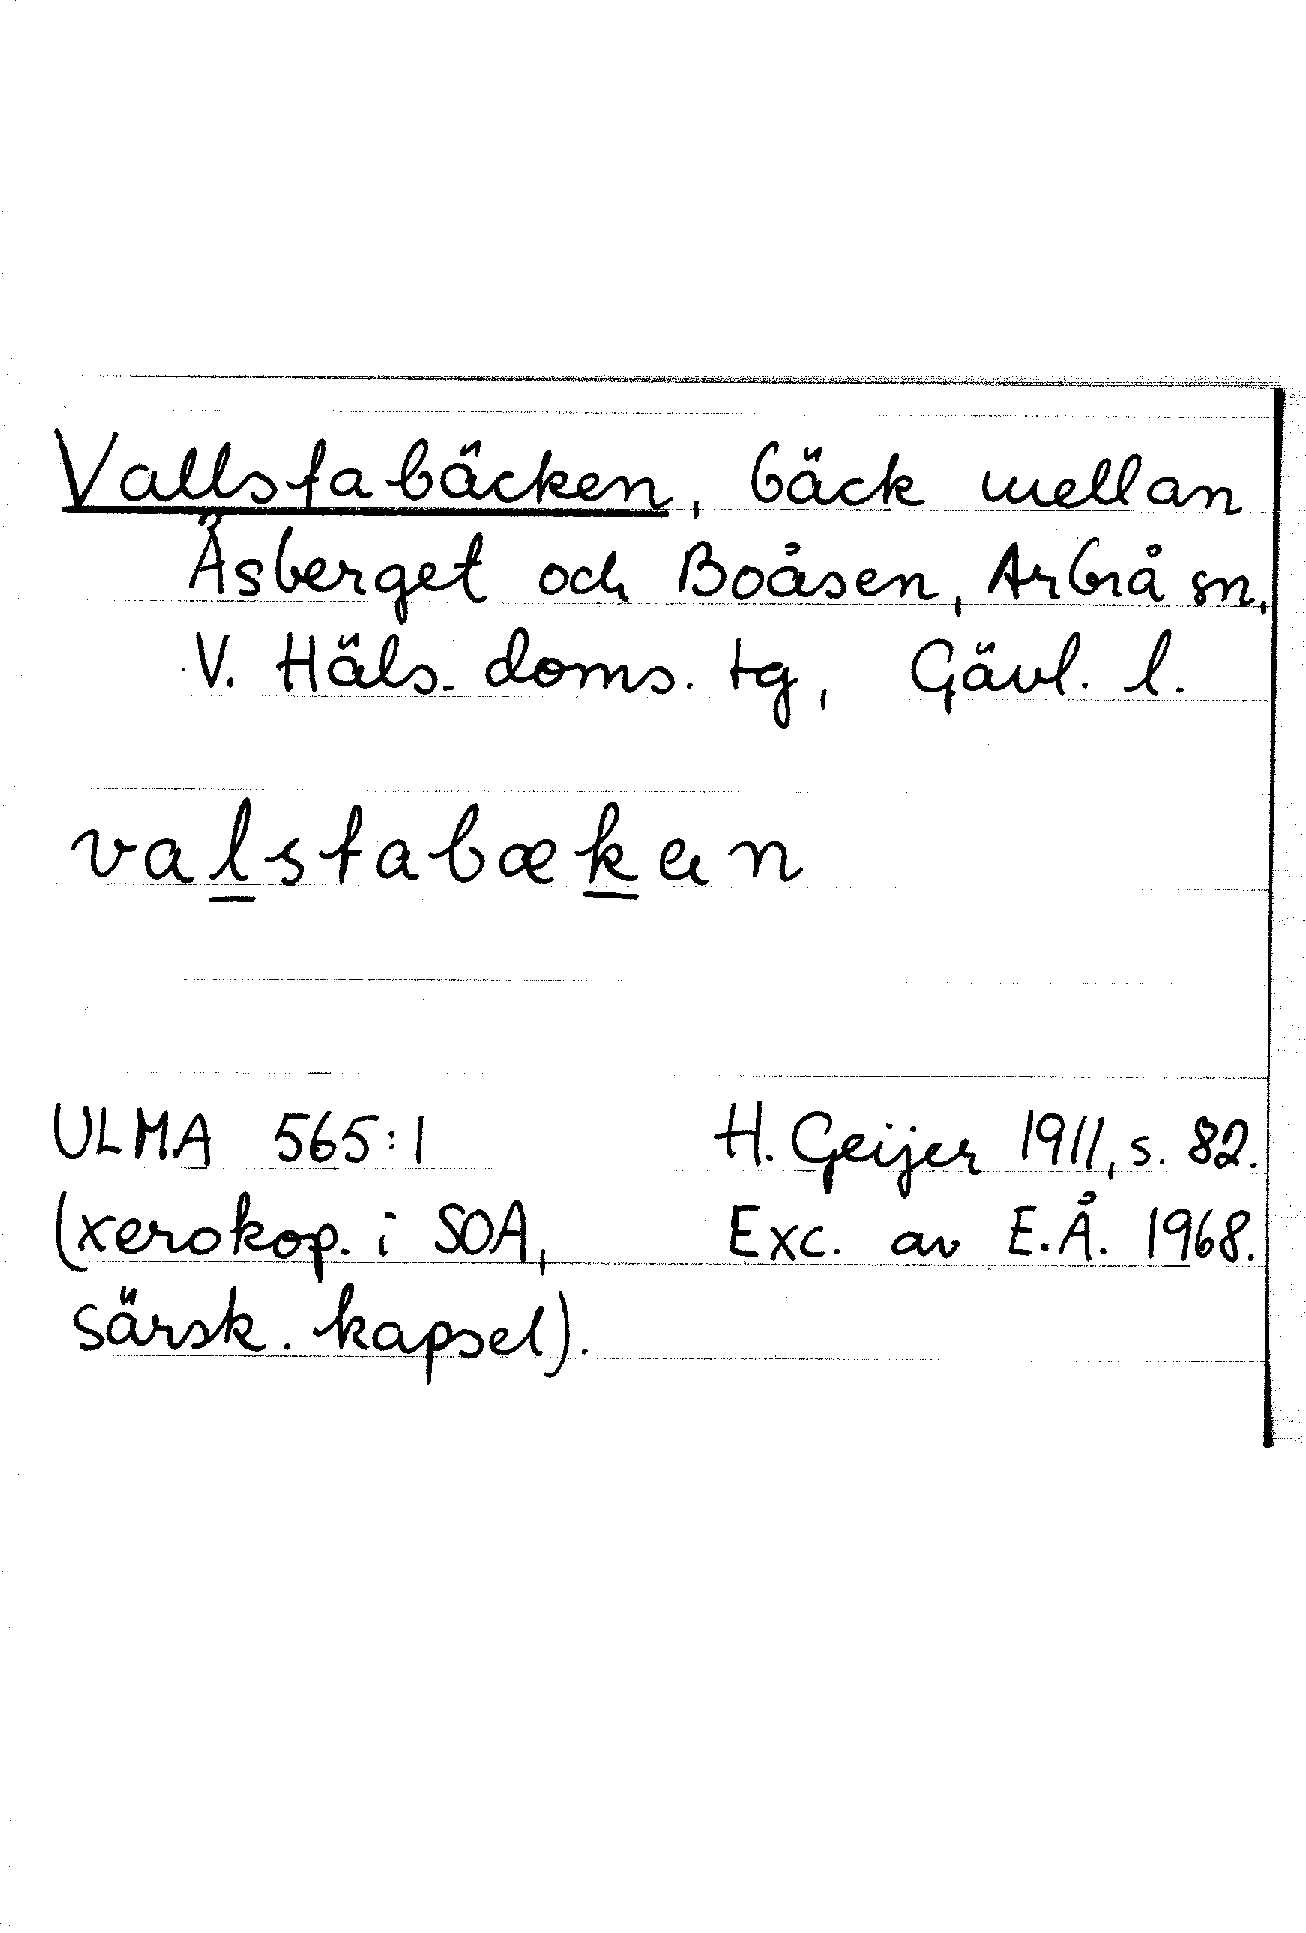 Vallstabäcken, bäck mellan
Åsberget och Boåsen, Arbrå sn,
V. Häls. doms. tg, Gävl. l.
valstabækan
ULMA 565:1 H. Geijer 1911, s. 82.
(xerokop. i SOA, Exc. av E.Å. 1968.
särsk. kapsel).